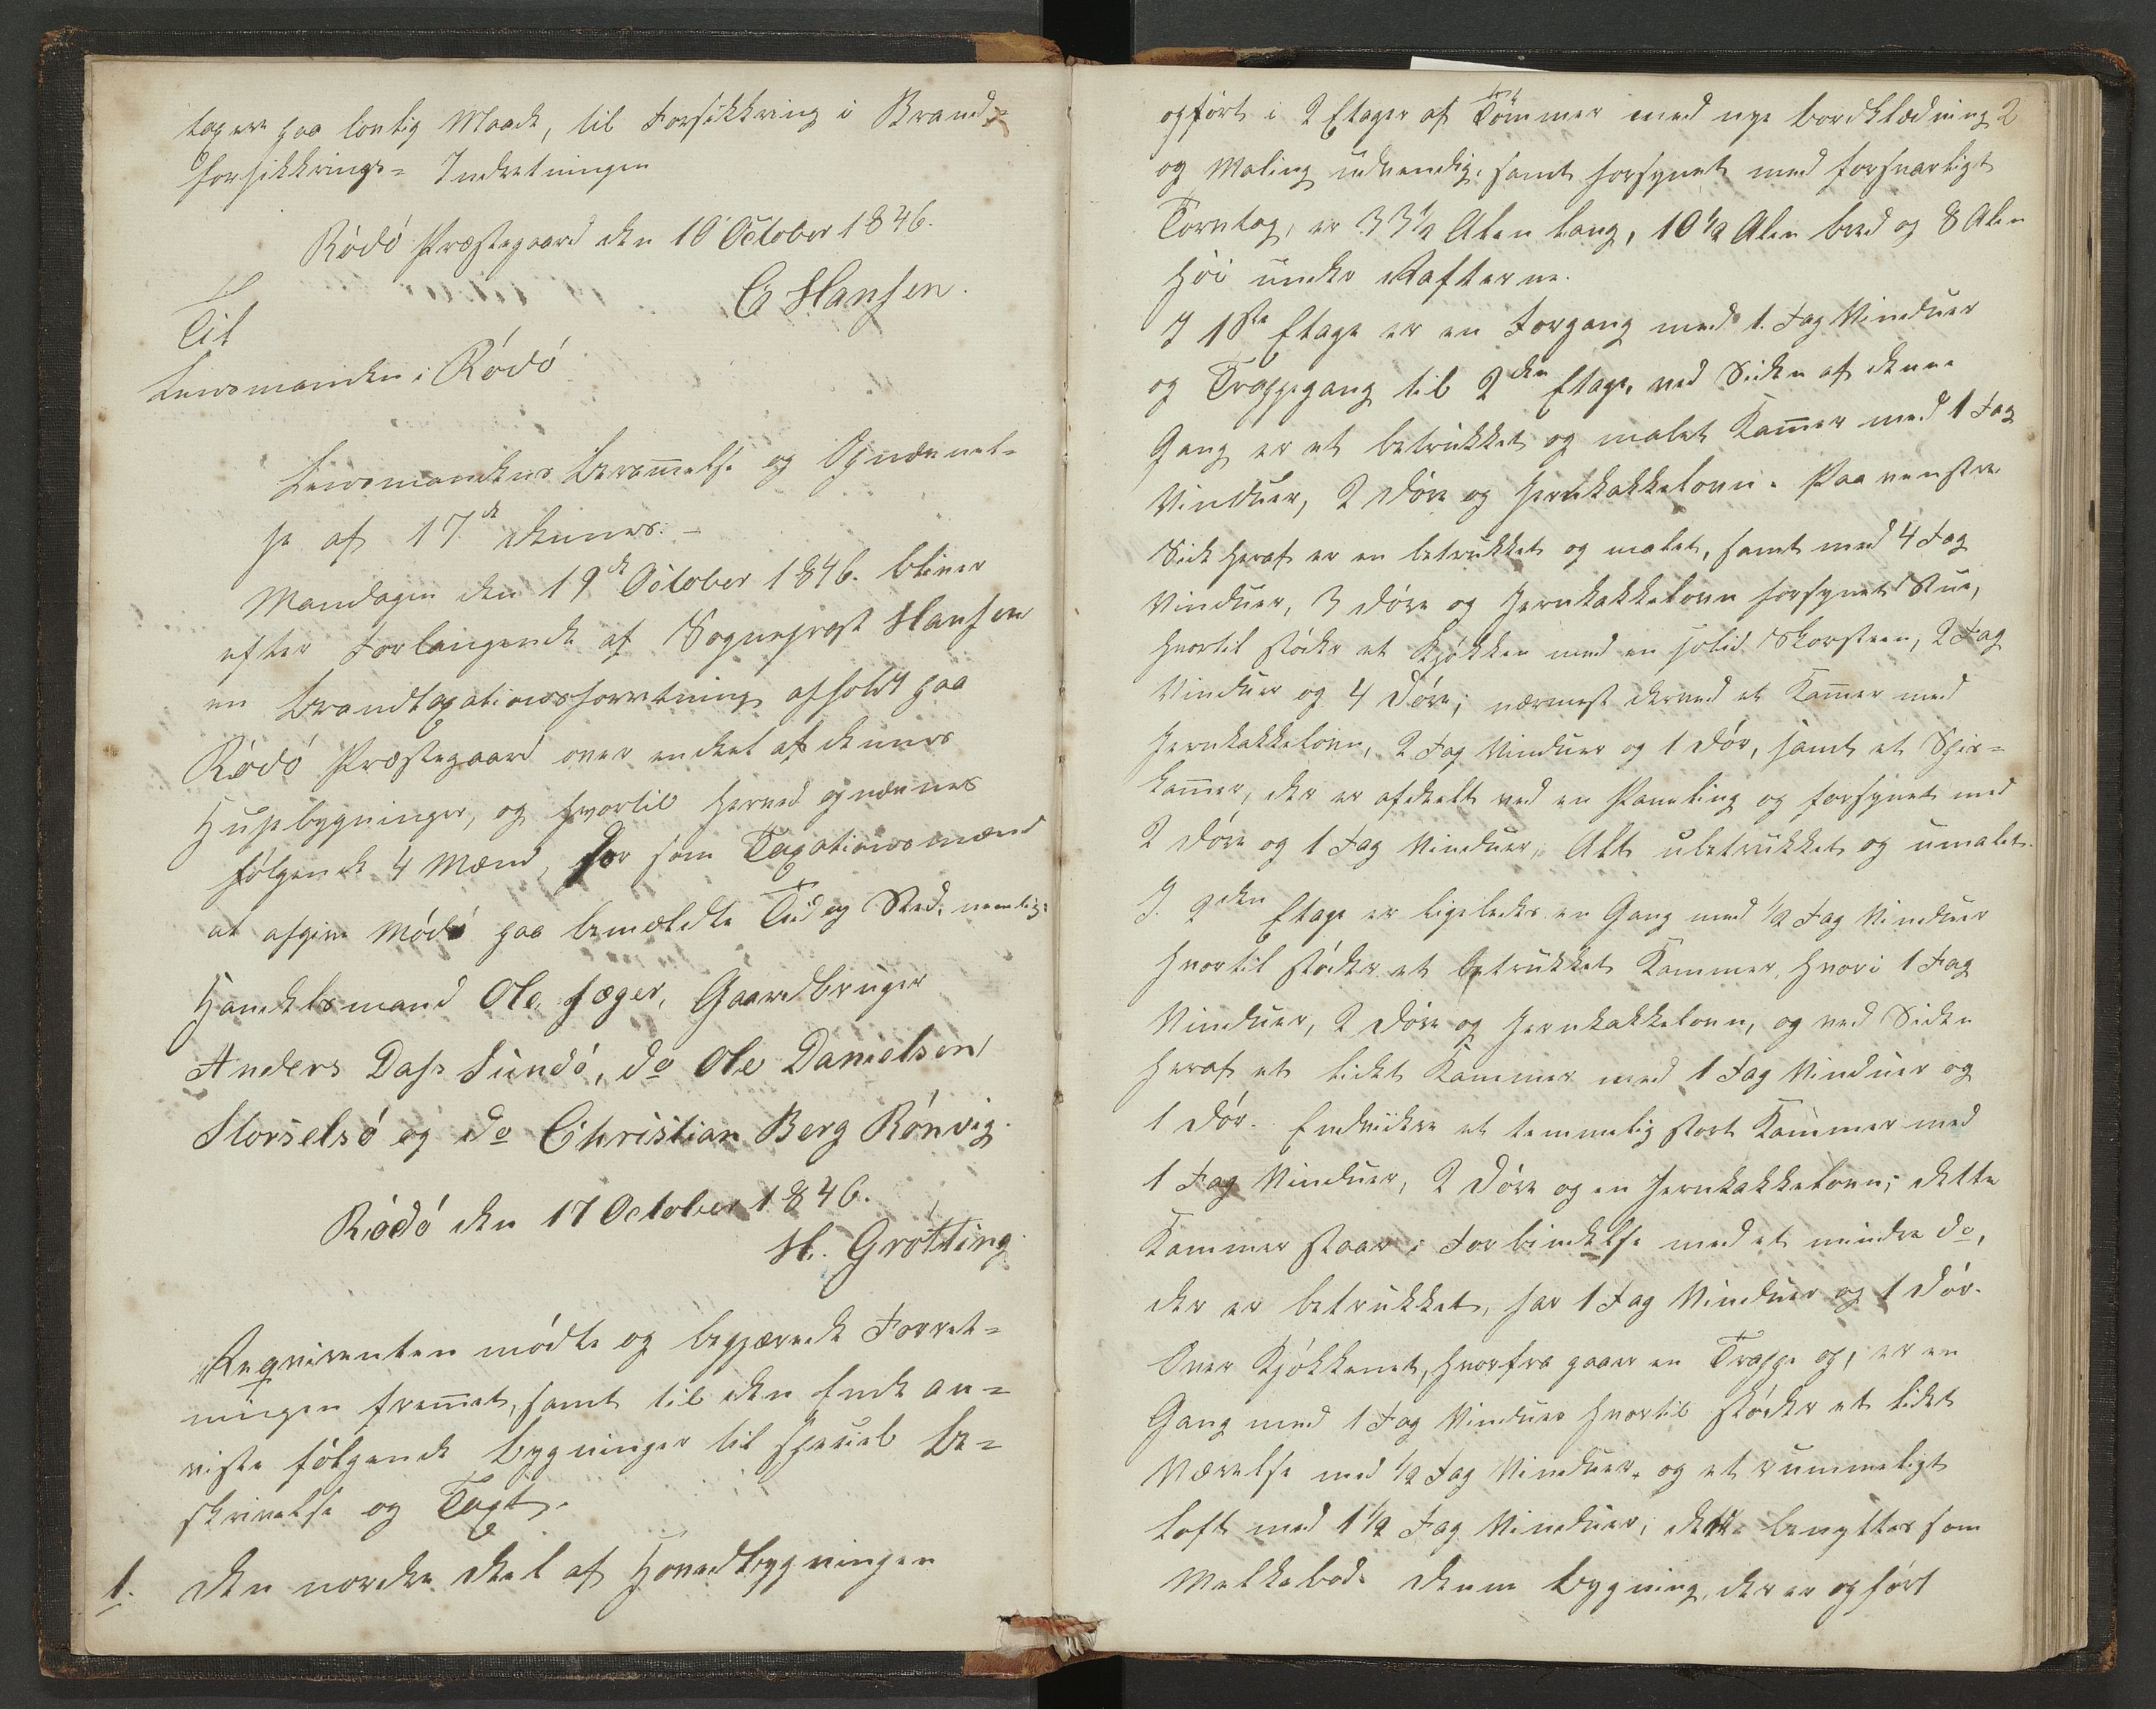 taxere paa lovlig Maade, til Forsikkring i Brand-
forsikkrings- Indretningen
Rödö Præstegaard den 10 October 1846.
C Hansen.
Til
Lensmanden i Rödö
Lensmandens Berammelse og Opnævnel-
se af 17de dennes. –
Mandagen den 19de October 1846. bliver
efter Forlangende af Sognepræst Hansen
en Brandtaxationsforretning afholdt paa
Rödö Præstegaard over endeel af dennes
Huusbygninger, og hvortil herved opnævnes
fölgende 4 Mænd, for som Taxationsmænd
at afgive Möde paa bemeldte Tid og Sted, nemlig:
Handelsmand Ole Jæger, Gaardbruger
Anders Dass Sundö, do Ole Danielsen
Storselsö og do Christian Berg Rönvig.
Rödö den 17 October 1846.
H. Grötting.
Reqvirenten mödte og begjærede Forret-
ningen fremmet, samt til den Ende an-
viste fölgende Bygninger til speciel Be-
skrivelse og Taxt.
1. Den nordre Deel af Hovedbygningen
opfört i 2 Etager af Tömmer med nye Bordklædning 2
og Maling udvendig, samt forsynet med forsvarligt
Torvtag, er 33 1/2 Alen lang, 10 1/2 Alen bred og 8 Alen
höi under Rafterne.
I 1ste Etage er en Forgang med 1. Fag Vinduer
og Trappegang til 2den Etage, ved Siden af denne
Gang er et betrukket og malet Kammer med 1 Fag
Vinduer, 2 Döre og Jernkakkelovn. Paa venstre
Side heraf er en betrukket og malet, samt med 4 Fag
Vinduer, 3 Döre og Jernkakkelovn forsynet Stue,
hvortil stöder et Kjökken med en solid Skorsteen, 2 Fag
Vinduer og 4 Döre; nærmest derved et Kammer med
Jernkakkelovn, 2 Fag Vinduer og 1 Dör, samt et Spis-
kammer, der er afdeelt ved en Paneling og forsynet med
2 Döre og 1 Fag Vinduer, Alt ubetrukket og umalet.
I. 2den Etage er ligeledes en Gang med 1/2 Fag Vinduer
hvortil stöder et betrukket Kammer, hvori 1 Fag
Vinduer, 2 Döre og Jernkakkelovn, og ved Siden
heraf et lidet Kammer med 1 Fag Vinduer og
1 Dör. Endvidere et temmelig stort Kammer med
1 Fag Vinduer, 2 Döre og en Jernkakkelovn; dette
Kammer staar i Forbindelse med et mindre do,
der er betrukket, har 1 Fag Vinduer og 1 Dör.
Over Kjökkenet, hvorfra gaaer en Trappe op, er en
Gang med 1 Fag Vinduer hvortil stöder et lidet
Værelse med 1/2 Fag Vinduer, og et rummeligt
Loft med 1 1/2 Fag Vinduer; dette benyttes som
Melkebod. Denne Bygning, der er opfört